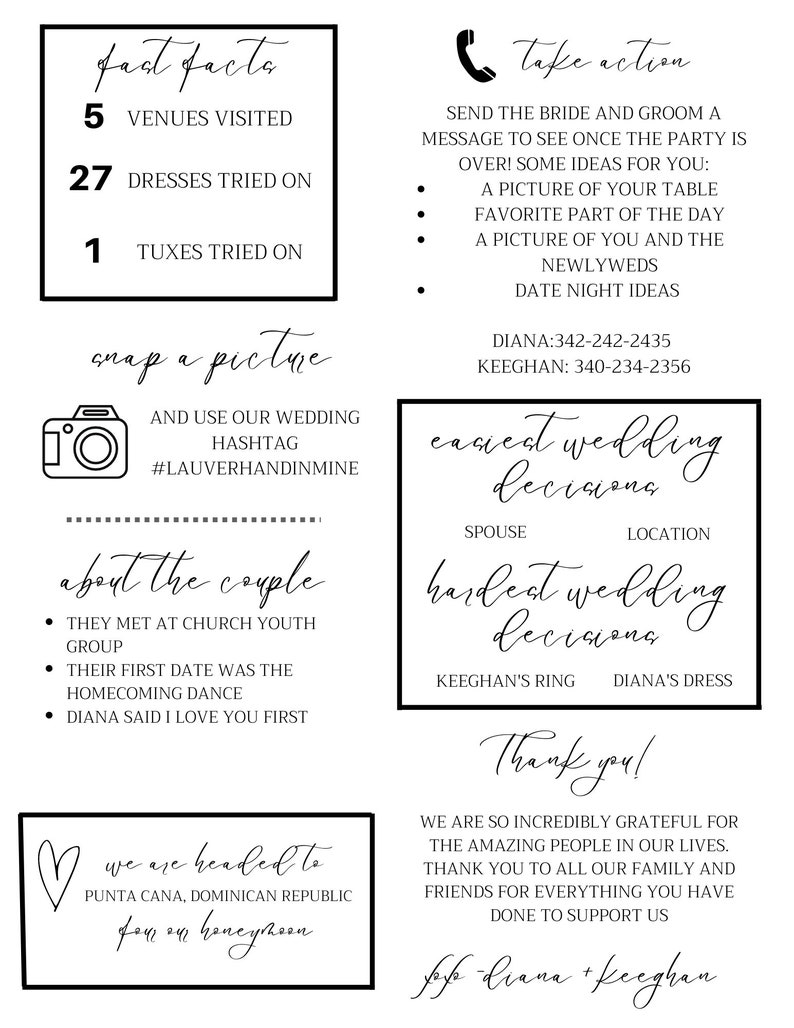 fast facts
5 VENUES VISITED
27 DRESSES TRIED ON
1 TUXES TRIED ON
snap a picture
AND USE OUR WEDDING
HASHTAG
#LAUVERHANDINMINE
about the couple
THEY MET AT CHURCH YOUTH
GROUP
THEIR FIRST DATE WAS THE
HOMECOMING DANCE
DIANA SAID I LOVE YOU FIRST
we are headed to
PUNTA CANA, DOMINICAN REPUBLIC
four our honeymoon
take action
SEND THE BRIDE AND GROOM A
MESSAGE TO SEE ONCE THE PARTY IS
OVER! SOME IDEAS FOR YOU:
A PICTURE OF YOUR TABLE
FAVORITE PART OF THE DAY
A PICTURE OF YOU AND THE
NEWLYWEDS
DATE NIGHT IDEAS
DIANA:342-242-2435
KEEGHAN: 340-234-2356
easiest wedding
decisions
SPOUSE LOCATION
hardest wedding
decisions
KEEGHAN'S RING DIANA'S DRESS
Thank you!
WE ARE SO INCREDIBLY GRATEFUL FOR
THE AMAZING PEOPLE IN OUR LIVES.
THANK YOU TO ALL OUR FAMILY AND
FRIENDS FOR EVERYTHING YOU HAVE
DONE TO SUPPORT US
-diana + keeghan